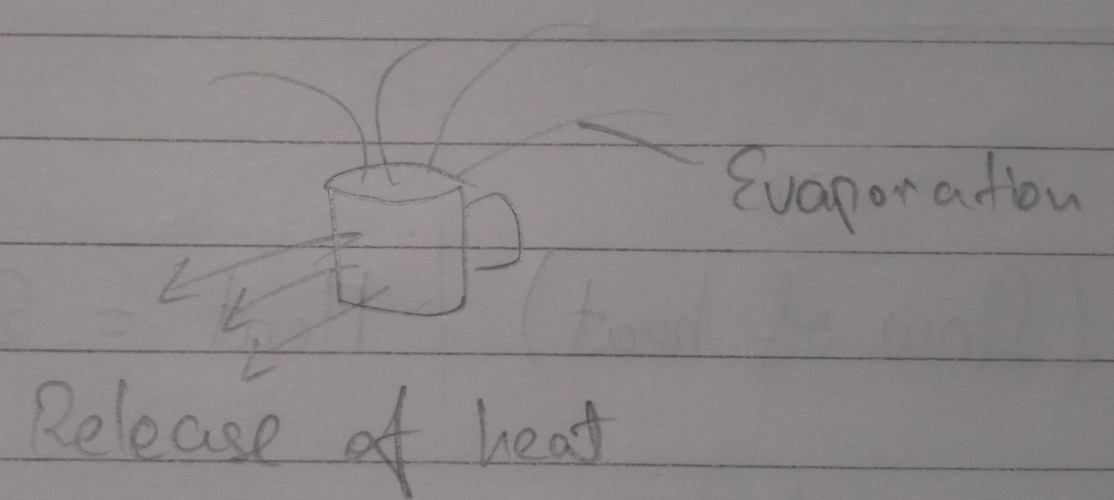 Evaporation
Release of heat